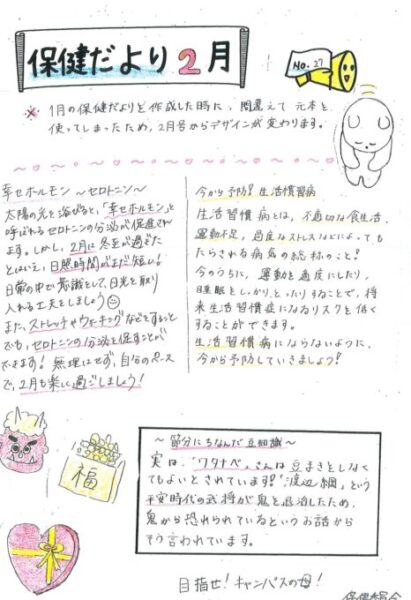 保健だより2月
No.27
※ 1月の保健だよりを作成した時に、間違えて元本を
使ってしまったため、2月号からデザインが変わります。
幸せホルモン 〜セロトニン〜
太陽の光を浴びると、「幸せホルモン」と
呼ばれるセロトニンの分泌が促進され
ます。しかし、2月に冬至が過ぎた
とはいえ、日照時間がまだ短い！
日常の中で意識をして、日光を取り
入れる工夫をしましょう
また、ストレッチやウォーキングなどをすること
でも、セロトニンの分泌を促すことが
できます！無理はせず、自分のペース
で、2月も楽しく過ごしましょう！
今から予防！生活習慣病
生活習慣病とは、不適切な食生活、
運動不足、過度なストレスなどによっても
たらされる病気の総称のこと？
今のうちに、運動を適度にしたり、
睡眠をしっかりとったりすることで、将
来生活習慣症になるリスクを低く
することができます。
生活習慣病にならないように、
今から予防していきましょう！
〜節分にちなんだ豆知識〜
実は、「ワタナベ」さんは豆まきをしなく
てもよいとされています！「渡辺綱」という
平安時代の武将が鬼を退治したため、
鬼から恐れられているというお話から
そう言われています。
福
目指せ！キャンパスの母！